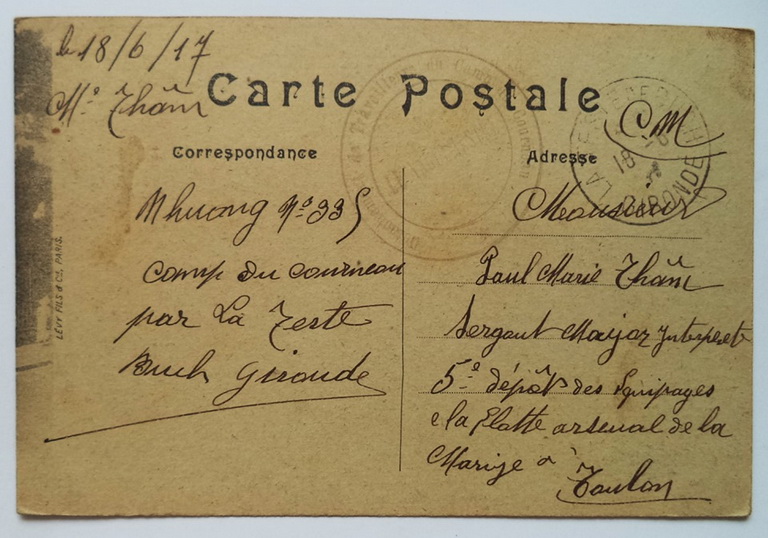 le 18/6/17
Mr Thâm
Carte Postale
CM
Correspondance
Adresse
Nhuong No 335
Camp du Courneau
par La Teste
Buch Gironde
Monsieur
Paul Marie Thâm
Sergent Major Interprete
5e dépôts des Equipages
de la Flotte arsenal de la
Marine à
Toulon
LA TESTE DE BUCH
18
GIRONDE
LÉVY FILS & Cie, PARIS.